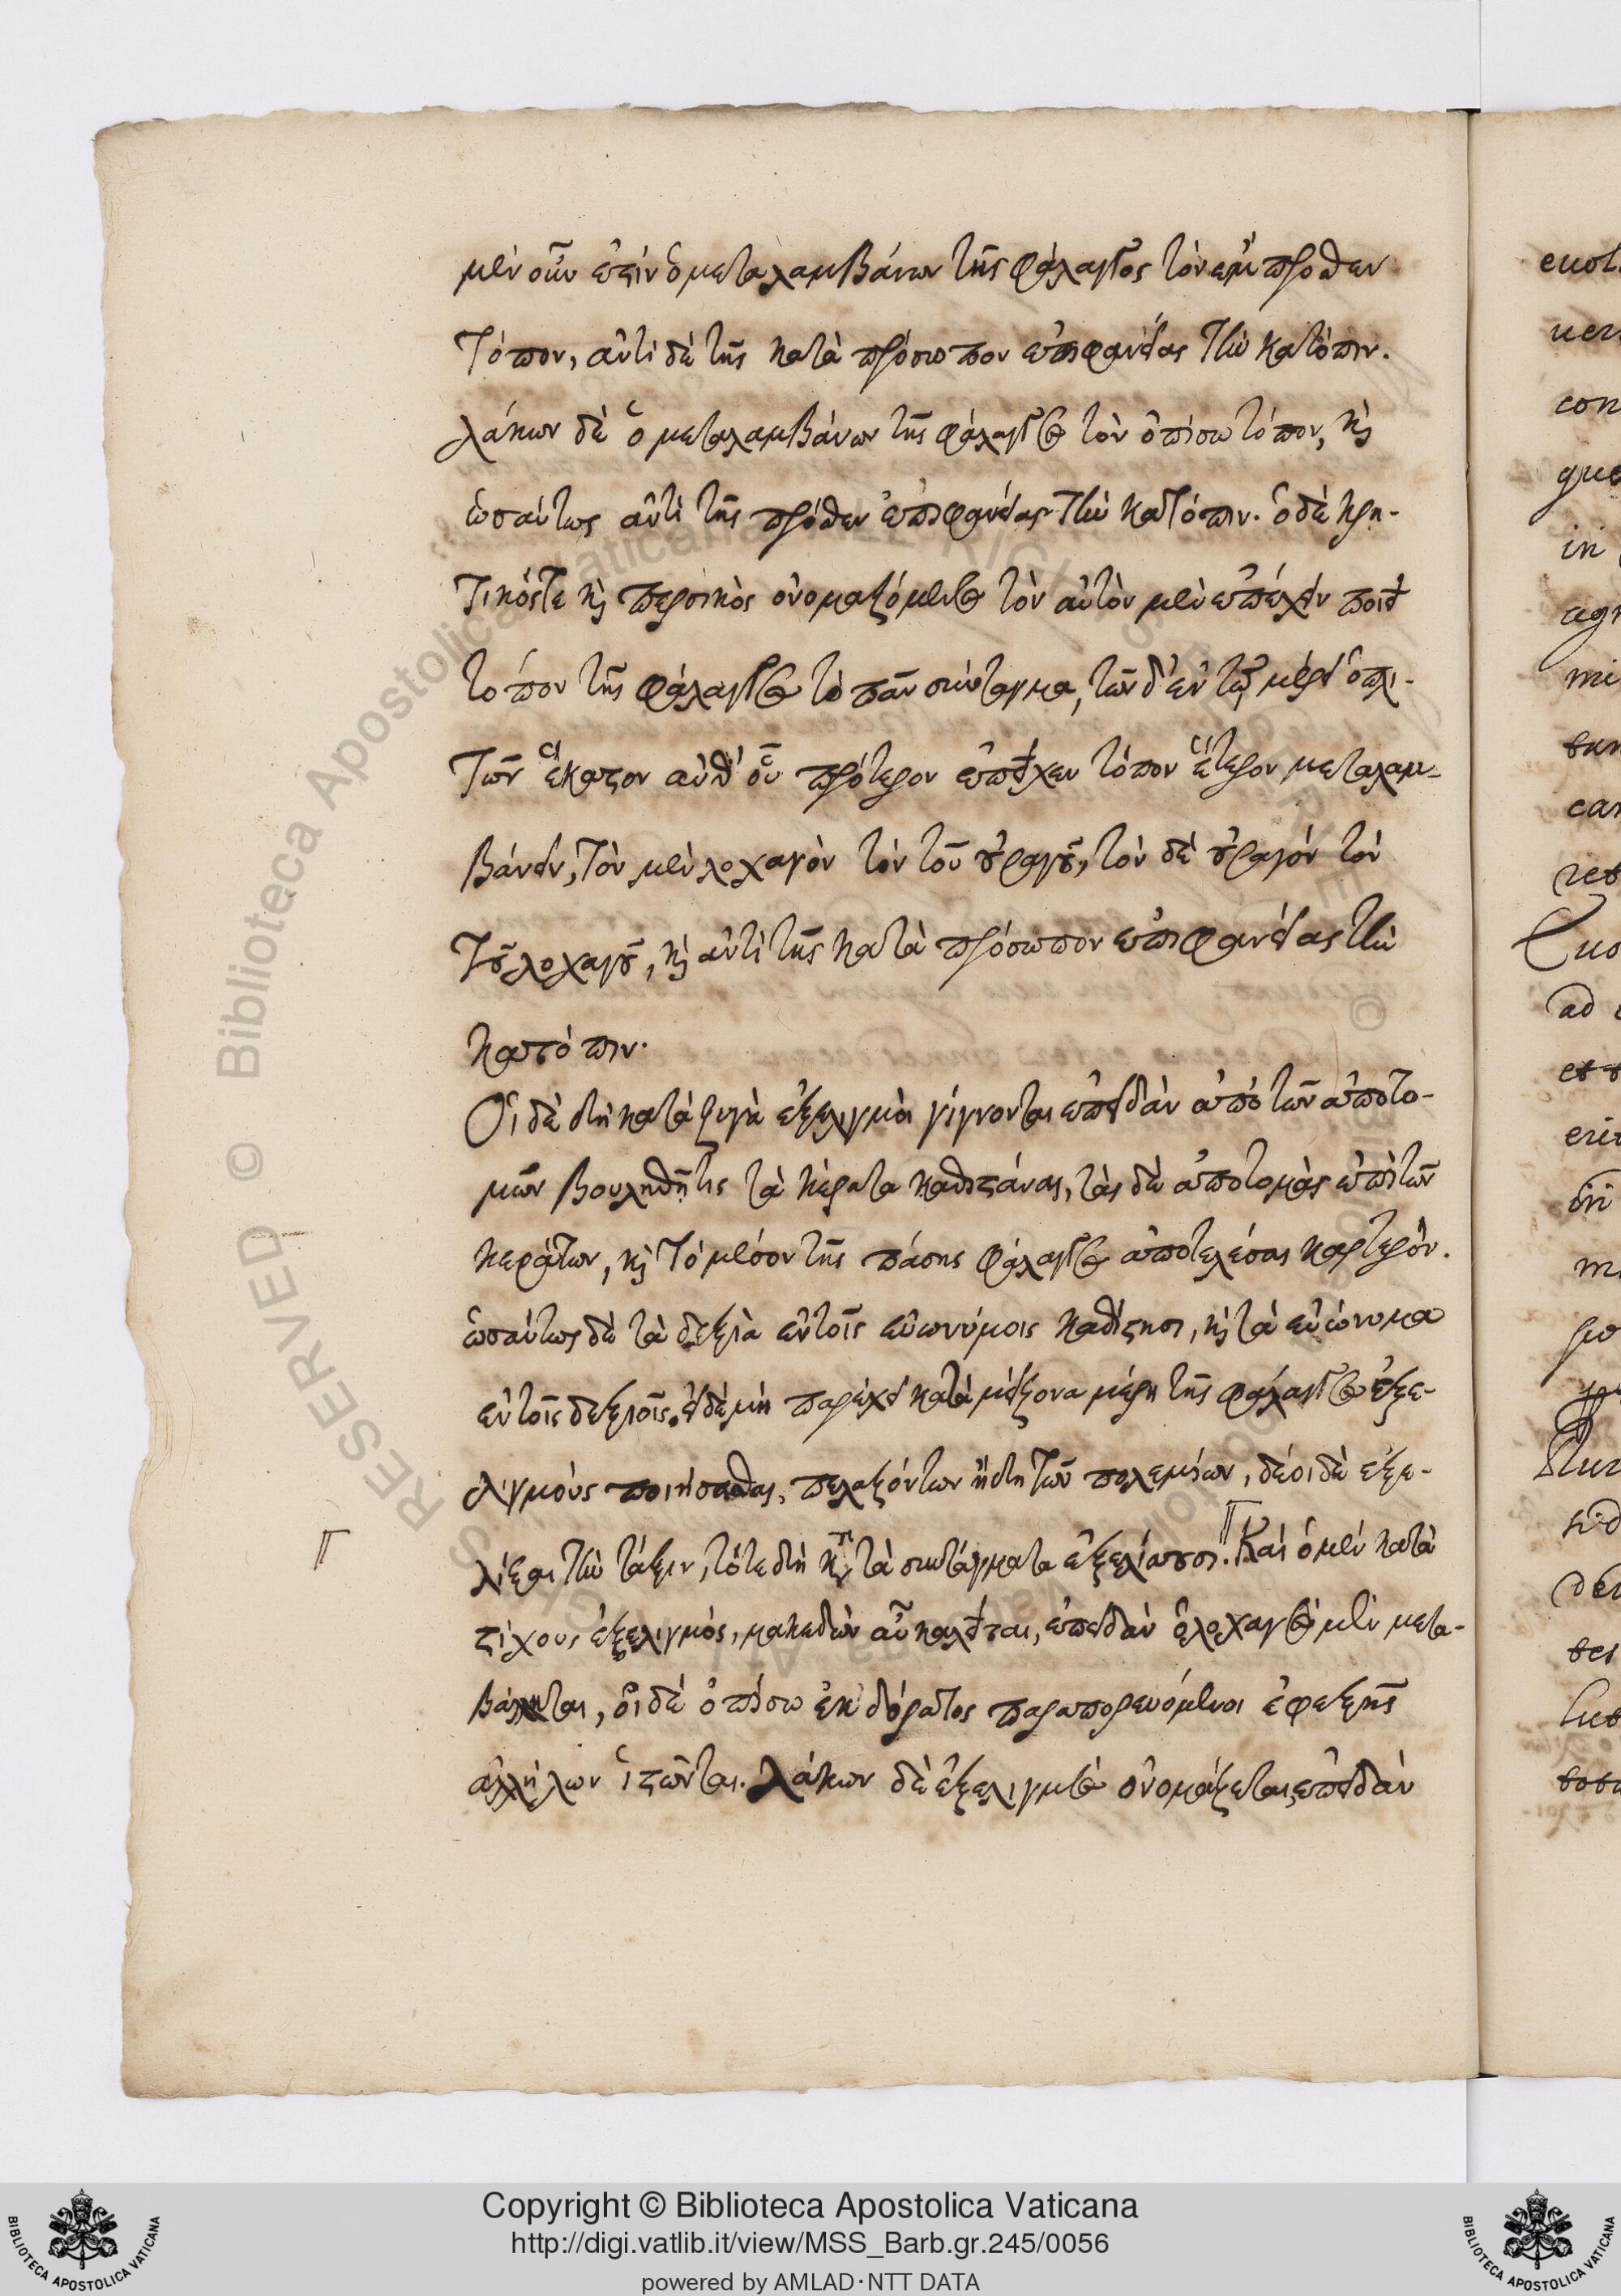 μὲν οὖν ἐστὶν ὁ μεταλαμβάνων τῆς φάλαγγος τὸν ἔμπροσθεν
τόπον, ἀντὶ δὲ τῆς κατὰ πρόσωπον ἐπιφανείας τὴν κατόπιν.
λάκων δὲ ὁ μεταλαμβάνων τῆς φάλαγγος τὸν ὀπίσω τόπον, καὶ
ὡσαύτως ἀντὶ τῆς πρόσθεν ἐπιφανείας τὴν κατόπιν. ὁ δὲ κρη-
τικός τε καὶ περσικὸς ὀνομαζόμενος τὸν αὐτὸν μὲν ἐπέχειν ποιεῖ
τόπον τῆς φάλαγγος τὸ πᾶν σύνταγμα, τῶν δ' ἐν τῷ μέρει ὁπλι-
τῶν ἕκαστον ἀνθ' οὗ πρότερον ἐπεῖχεν τόπον ἕτερον μεταλαμ-
βάνειν, τὸν μὲν λοχαγὸν τὸν τοῦ οὐραγοῦ, τὸν δὲ οὐραγὸν τὸν
τοῦ λοχαγοῦ, καὶ ἀντὶ τῆς κατὰ πρόσωπον ἐπιφανείας τὴν
κατόπιν.
Οἱ δὲ δὴ κατὰ ζυγὰ ἐξελιγμοὶ γίγνονται ἐπειδὰν ἀπὸ τῶν ἀποτο-
μῶν βουληθῇ τις τὰ κέρατα καθιστάναι, τὰς δὲ ἀποτομὰς ἐπὶ τῶν
κεράτων, καὶ τὸ μέσον τῆς πάσης φάλαγγος ἀποτελέσαι καρτερόν.
ὡσαύτως δὲ τὰ δεξιὰ ἐν τοῖς εὐωνύμοις καθίστησι, καὶ τὰ εὐώνυμα
ἐν τοῖς δεξιοῖς. εἰ δὲ μὴ παρέχει κατὰ μείζονα μέρη τῆς φάλαγγος ἐξε-
λιγμοὺς ποιήσασθαι, πελαζόντων ἤδη τῶν πολεμίων, δέοι δὲ ἐξε-
λίξαι τὴν τάξιν, τότε δὴ κατὰ τὰ συντάγματα ἐξελίσσουσι. Καὶ ὁ μὲν κατὰ
στίχους ἐξελιγμός, μακεδὼν αὖ καλεῖται, ἐπειδὰν ὁ λοχαγὸς μὲν μετα-
βάληται, οἱ δὲ ὀπίσω ἐκ δόρατος παραπορευόμενοι ἐφεξῆς
ἀλλήλων ἱστῶνται. λάκων δὲ ἐξελιγμὸς ὀνομάζεται ἐπειδὰν
Copyright © Biblioteca Apostolica Vaticana
http://digi.vatlib.it/view/MSS_Barb.gr.245/0056
powered by AMLAD·NTT DATA